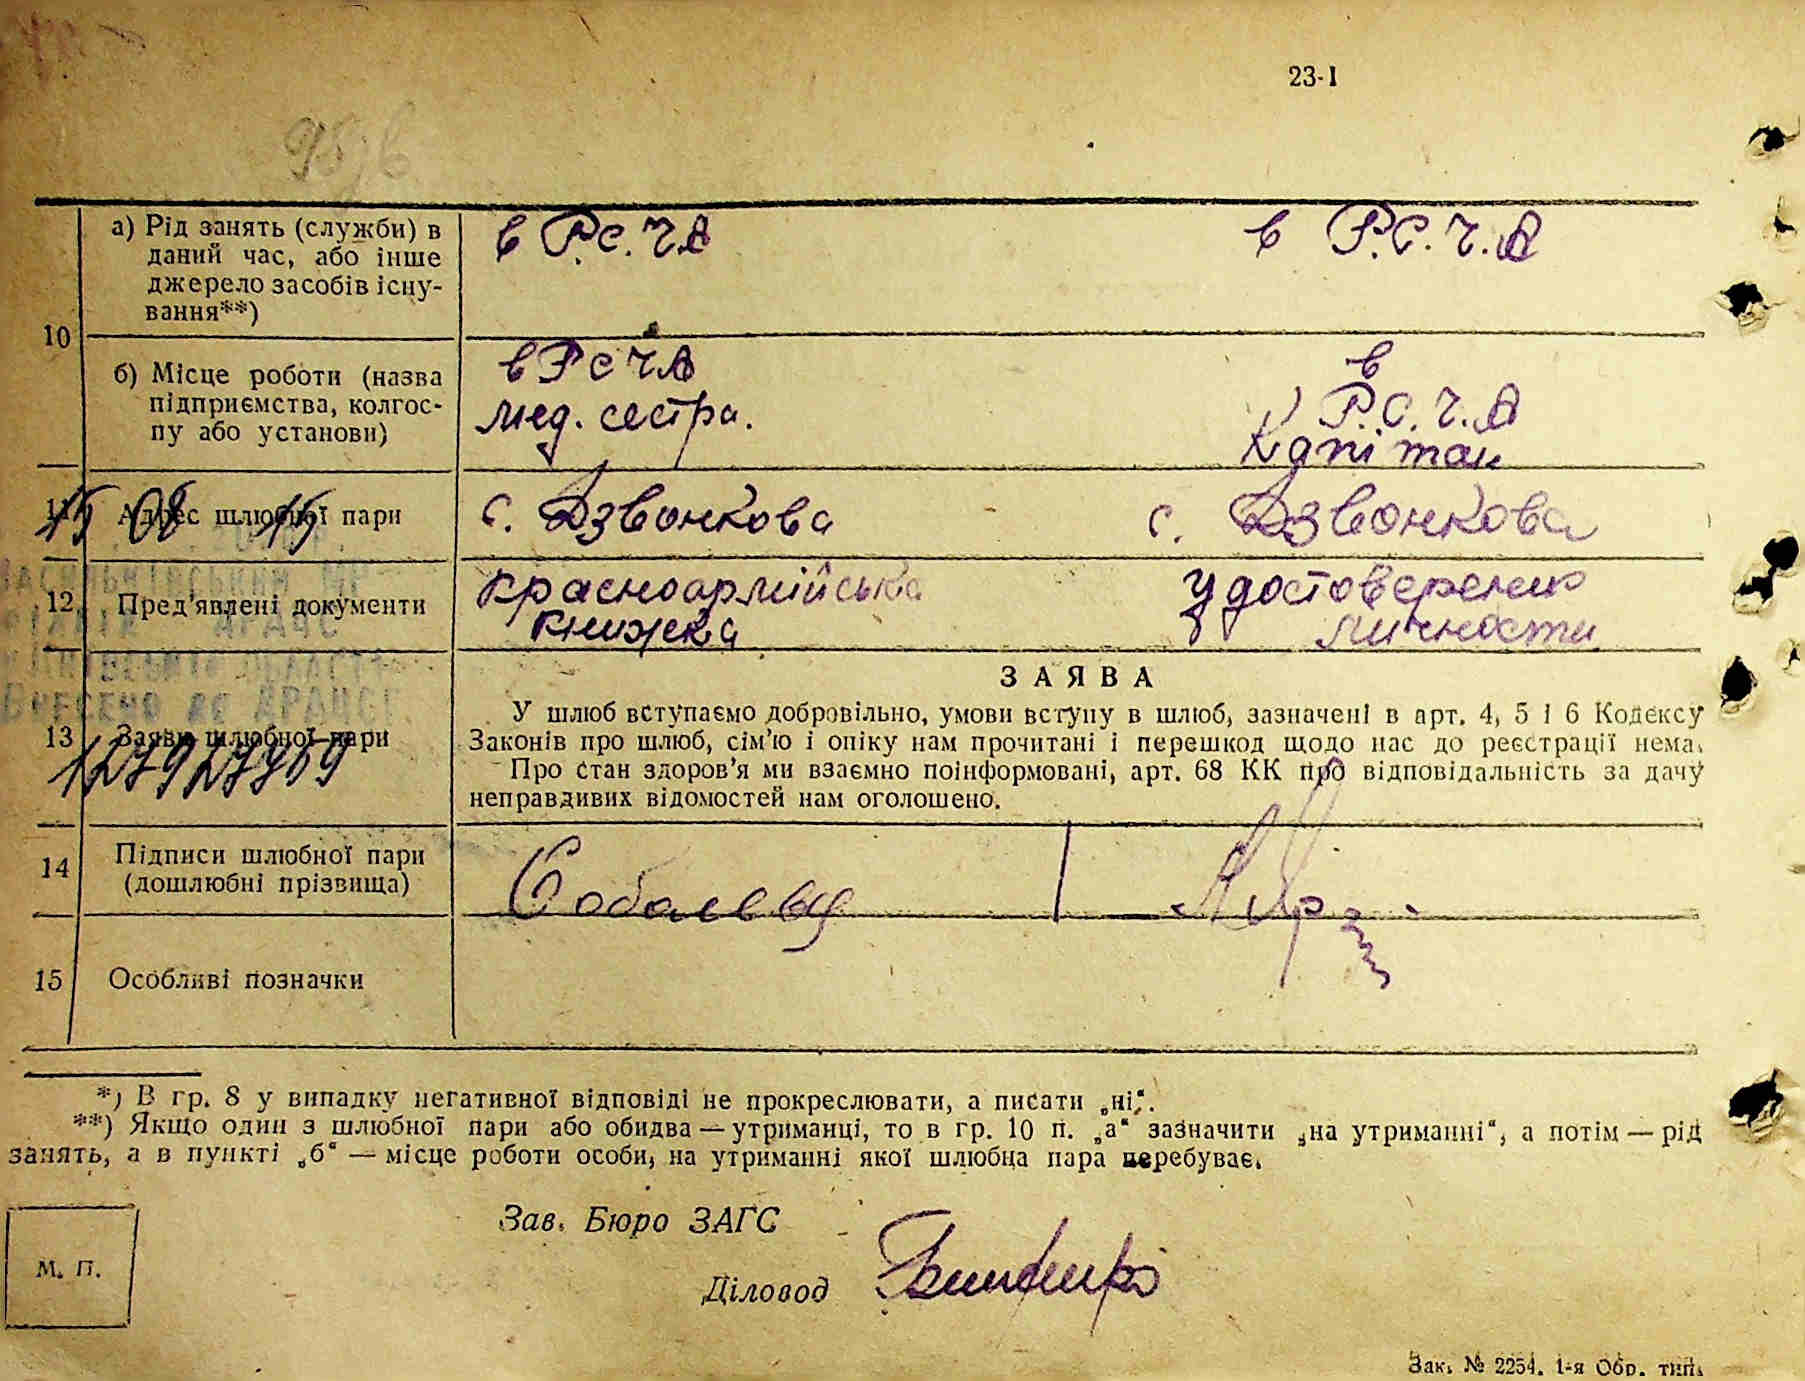 23-1
10
а) Рід занять (служби) в
даний час, або інше
джерело засобів існу-
вання**)
в Р.С.ЧА
в Р.С.Ч.А
б) Місце роботи (назва
підприємства, колгос-
пу або установи)
в РСЧА
мед. сестра.
в
Р.С.Ч.А
Капітан
11 Адрес шлюбної пари
15 08 15
с. Дзвонкова
с. Дзвонкова
12 Пред'явлені документи
красноармійська
книжка
Удостоверение
личности
ДРАЦС
Внесено до ДРАЦСГ
13 Заява шлюбної пари
ЗАЯВА
У шлюб вступаємо добровільно, умови вступу в шлюб, зазначені в арт. 4, 5 і 6 Кодексу
Законів про шлюб, сім'ю і опіку нам прочитані і перешкод щодо нас до реєстрації нема.
Про стан здоров'я ми взаємно поінформовані, арт. 68 КК про відповідальність за дачу
неправдивих відомостей нам оголошено.
14
Підписи шлюбної пари
(дошлюбні прізвища)
15 Особливі позначки
*) В гр. 8 у випадку негативної відповіді не прокреслювати, а писати „ні“.
**) Якщо один з шлюбної пари або обидва — утриманці, то в гр. 10 п. „а“ зазначити „на утриманні“, а потім — рід
занять, а в пункті „б“ — місце роботи особи, на утриманні якої шлюбна пара перебуває.
Зав. Бюро ЗАГС
М. П.
Діловод
Зак. № 2254. 1-я Обр. тип.